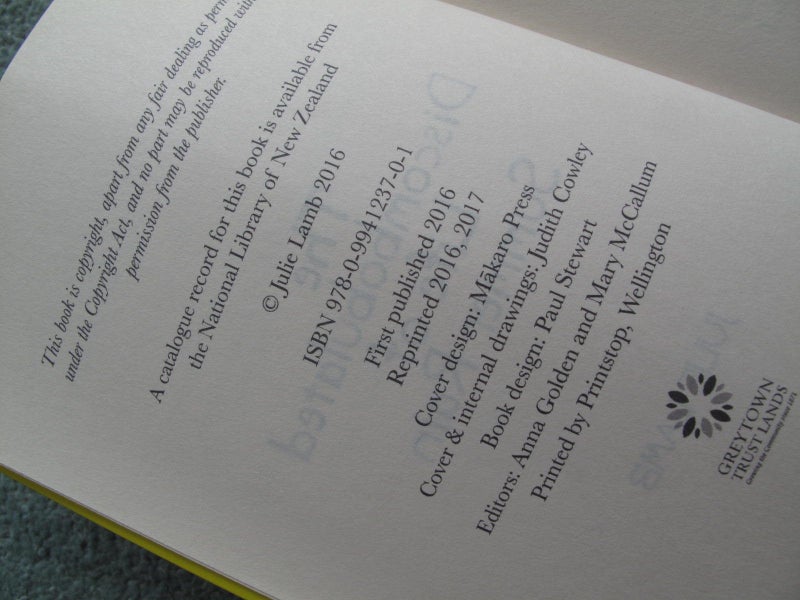 This book is copyright, apart from any fair dealing as
under the Copyright Act, and no part may be reproduced
permission from the publisher.
A catalogue record for this book is available from
the National Library of New Zealand
© Julie Lamb 2016
ISBN 978-0-9941237-0-1
First published 2016
Reprinted 2016, 2017
Cover design: Mākaro Press
Cover & internal drawings: Judith Cowley
Book design: Paul Stewart
Editors: Anna Golden and Mary McCallum
Printed by Printstop, Wellington
GREYTOWN
TRUST LANDS
Growing the Community since 1871